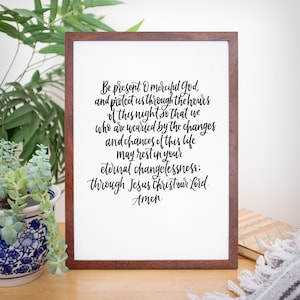 Be present O merciful God,
and protect us through the hours
of this night, so that we
who are wearied by the changes
and chances of this life
may rest in your
eternal changelessness;
through Jesus Christ our Lord
Amen